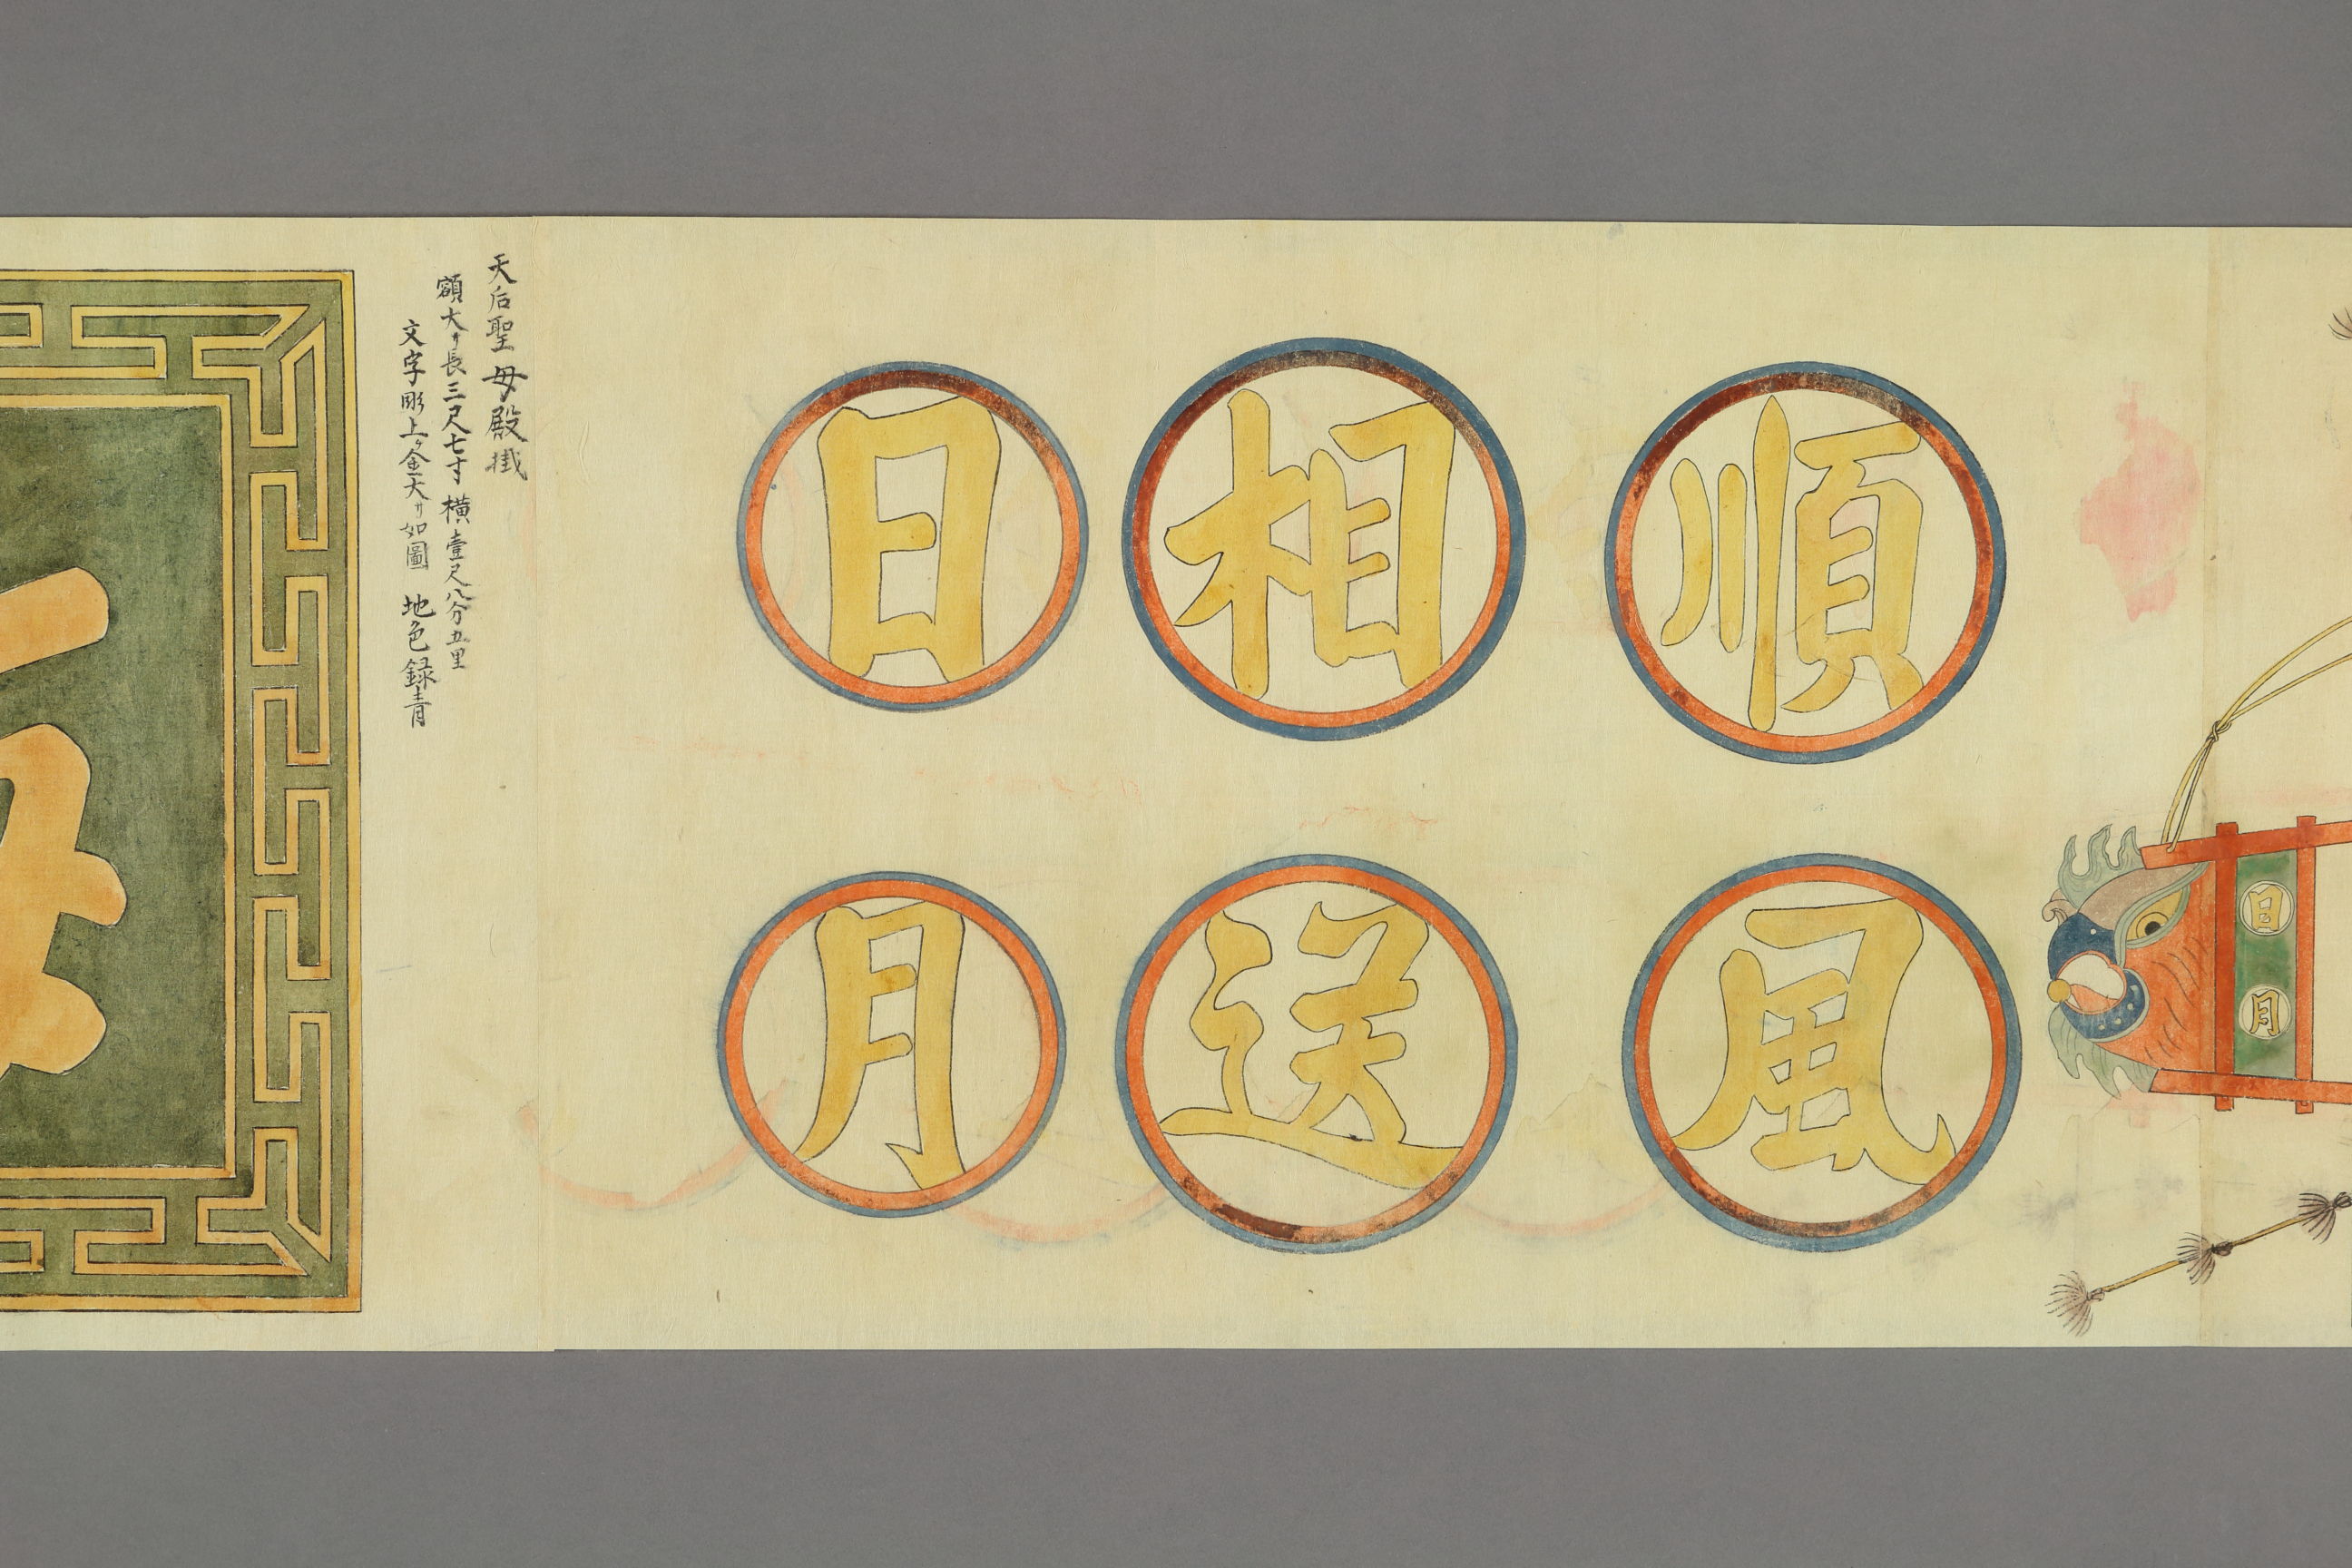 日
月
順
風
相
送
日
月
天后聖母殿掛
額大サ長三尺七寸 横壹尺八分五里
文字彫上ケ金大サ如圖 地色録青